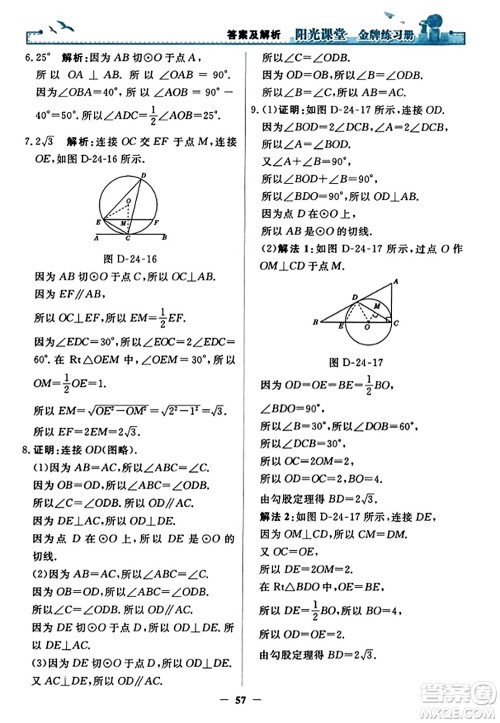 答案及解析 阳光课堂 金牌练习册
6.25° 解析:因为 AB 切⊙O 于点 A,
所以 OA⊥AB.所以∠OAB=90°.
所以∠OBA=40°,∠AOB=90°-
40°=50°.所以∠ADC=1/2∠AOB=25°.
7.2√3 解析:连接 OC 交 EF 于点 M,连接
OE,如图 D-24-16 所示.
O
E M F
A C B
图 D-24-16
因为 AB 切⊙O 于点 C,所以 OC⊥AB.
因为 EF∥AB,
所以 OC⊥EF,所以 EM=1/2EF.
因为∠EDC=30°,所以∠EOC=60°.
所以∠OEM=30°.在 Rt△OEM 中,
OM=1/2OE=1,
所以 EM=√OE²-OM²=√2²-1²=√3.
所以 EF=2EM=2√3.
8.证明:连接 OD(图略).
(1)因为 AB=AC,所以∠ABC=∠C.
因为 OB=OD,所以∠ABC=∠ODB.
所以∠ODB=∠C.所以 OD∥AC.
因为 DE⊥AC,所以 OD⊥DE.
因为点 D 在⊙O 上,所以 DE 是⊙O 的
切线.
(2)因为 AB=AC,所以∠B=∠C.
因为 OB=OD,所以∠B=∠ODB.
所以∠C=∠ODB.所以 OD∥AC.
因为⊙O 切 AC 于点 E,所以 OE⊥AC.
因为 DF⊥AC,所以 OD⊥DF.
所以 DF 与⊙O 相切.
(3)因为 AC 切⊙O 于点 D,所以 OD⊥AC.
又因为 AC⊥DE,所以 OD∥DE.
所以 OC=OD=OB.
所以∠C=∠ODC=60°.
9.(1)证明:如图 D-24-17 所示,连接 OD.
所以∠A=∠BOD.
又∠A+∠B=90°,
所以∠BOD+∠B=90°.
所以∠BDO=90°,即 OD⊥AB.
又因为点 D 在⊙O 上,
所以 AB 是⊙O 的切线.
(2)解法 1:如图 D-24-17 所示,过点 O 作
OM⊥CD 于点 M.
A
D
M
B E O C
图 D-24-17
因为 OD=OE=BE=1/2BO,
∠BDO=90°,
所以∠B=30°.所以∠DOB=60°.
因为 OD=OC,
所以∠DCB=∠ODC.
又因为∠DOB=∠ODC+∠DCB=2∠DCB,
所以∠DCB=30°.
因为在 Rt△OCM 中,∠DCB=30°,OM=1,
所以 OC=2OM=2.
所以 OD=2,BO=BE+OE=2OE=4.
由勾股定理得 BD=2√3.
解法 2:如图 D-24-17 所示,连接 DE,
因为 OM⊥CD 于点 M,所以 CM=DM.
又 OC=OE,
所以 DE=2OM=2.
因为在 Rt△BDO 中,OE=BE,
所以 DE=1/2BO,所以 BO=4.
所以 OD=OE=2.
由勾股定理得 BD=2√3.
57